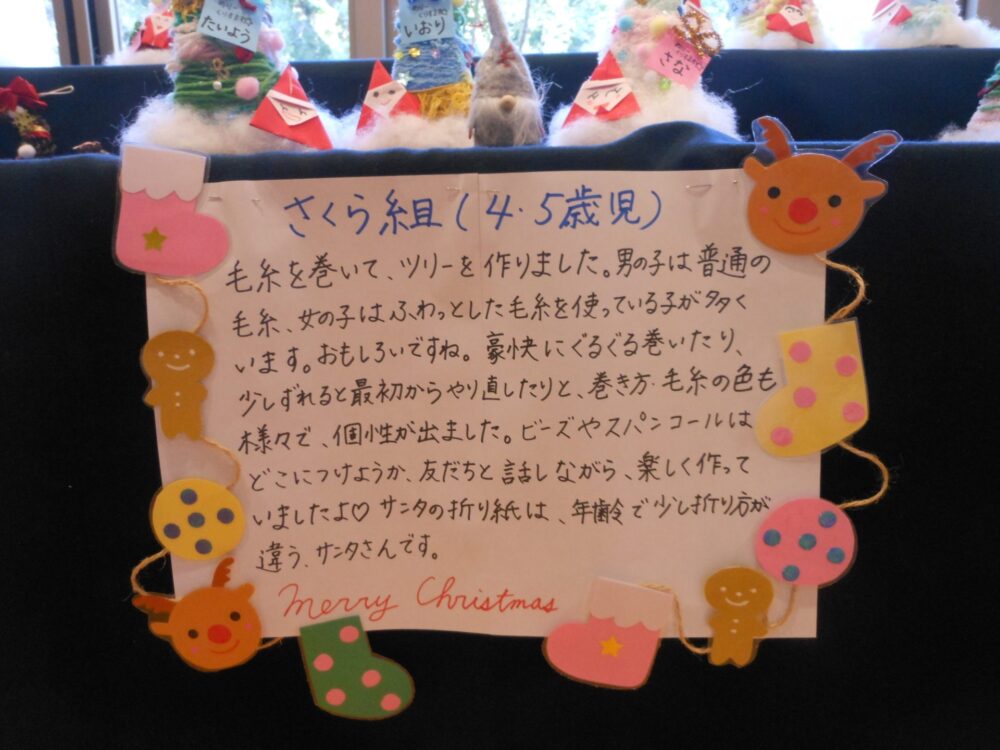 たいよう
いおり
さな
さくら組(4・5歳児)
毛糸を巻いて、ツリーを作りました。男の子は普通の
毛糸、女の子はふわっとした毛糸を使っている子が多く
います。おもしろいですね。豪快にぐるぐる巻いたり、
少しずれると最初からやり直したりと、巻き方・毛糸の色も
様々で、個性が出ました。ビーズやスパンコールは
どこにつけようか、友だちと話しながら、楽しく作って
いましたよ♡ サンタの折り紙は、年齢で少し折り方が
違う、サンタさんです。
Merry Christmas